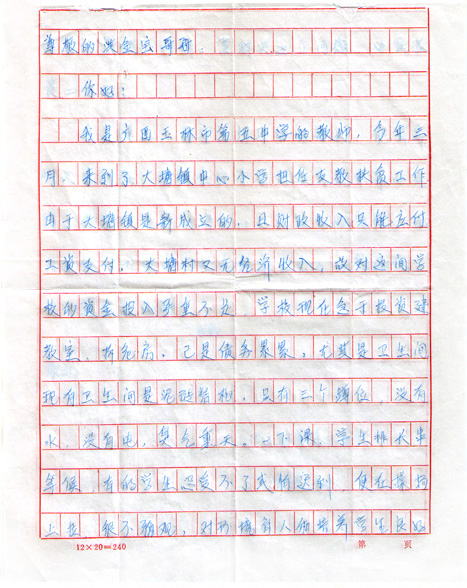 尊敬的洪金宝哥哥:
你好!
我是广西玉林市第五中学的教师,今年三
月,来到了大塘镇中心小学担任支教扶贫工作
由于大塘镇是新成立的,且财政收入只能应付
工资支付。大塘村又无经济收入,故对这间学
校的资金投入严重不足 学校现在急于投资建
教室,拆危房,已是债务累累,尤其是卫生间
现有卫生间是泥砖结构,只有三个蹲位,没有
水,没有电,臭气重天。一下课,学生排长串
等候 有的学生忍受不了或怕迟到,便在操场
上拉,很不雅观,对 人 培养学生良好
12×20=240
第 頁